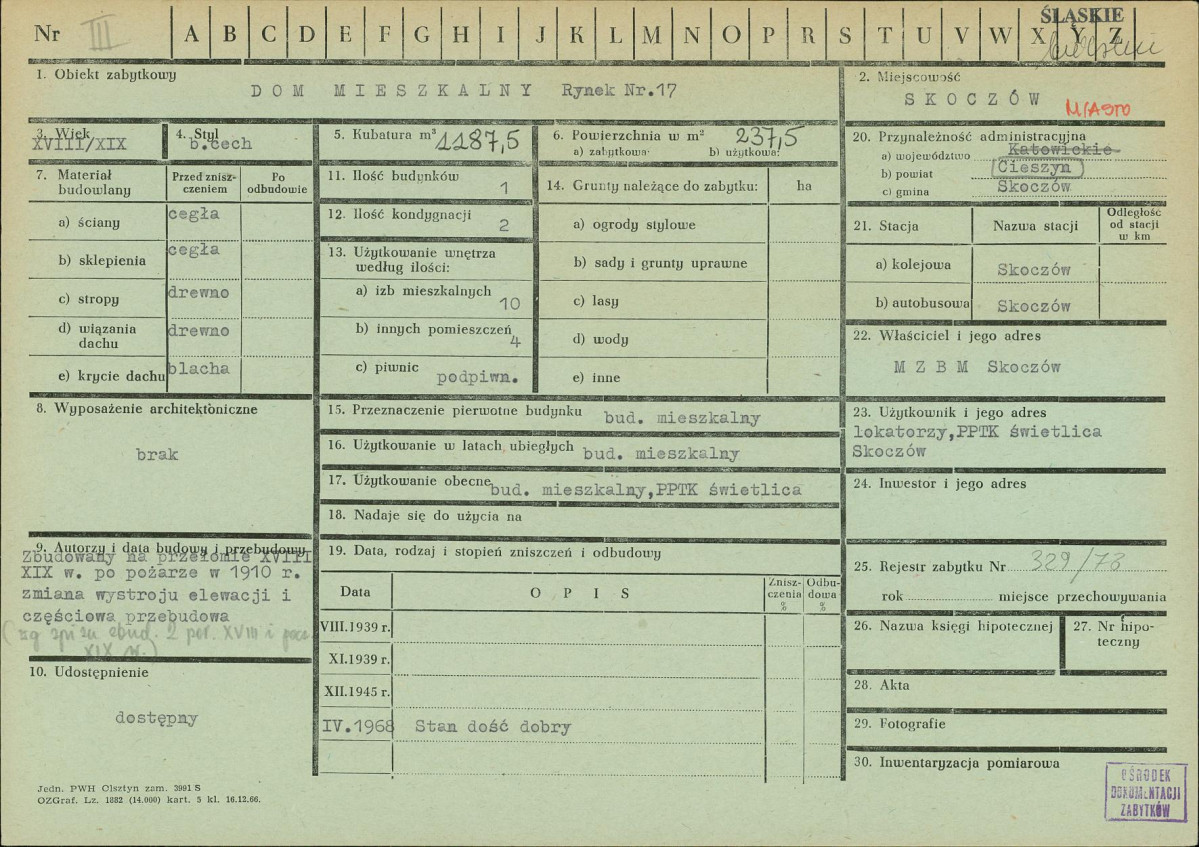 Nr III A B C D E F G H I J K L M N O P R S T U V W X Y Z
ŚLĄSKIE
1. Obiekt zabytkowy
DOM MIESZKALNY Rynek Nr.17
2. Miejscowość
SKOCZÓW
MIASTO
3. Wiek
XVIII/XIX
4. Styl
b.cech
5. Kubatura m³ 1187,5
6. Powierzchnia w m² 237,5
a) zabytkowa: b) użytkowa:
7. Materiał budowlany
Przed zniszczeniem
Po odbudowie
a) ściany cegła
b) sklepienia cegła
c) stropy drewno
d) wiązania dachu drewno
e) krycie dachu blacha
11. Ilość budynków 1
12. Ilość kondygnacji 2
13. Użytkowanie wnętrza według ilości:
a) izb mieszkalnych 10
b) innych pomieszczeń 4
c) piwnic podpiwn.
14. Grunty należące do zabytku: ha
a) ogrody stylowe
b) sady i grunty uprawne
c) lasy
d) wody
e) inne
20. Przynależność administracyjna
a) województwo Katowickie
b) powiat Cieszyn
c) gmina Skoczów
21. Stacja Nazwa stacji Odległość od stacji w km
a) kolejowa Skoczów
b) autobusowa Skoczów
22. Właściciel i jego adres
M Z B M Skoczów
8. Wyposażenie architektoniczne
brak
15. Przeznaczenie pierwotne budynku bud. mieszkalny
16. Użytkowanie w latach ubiegłych bud. mieszkalny
17. Użytkowanie obecne bud. mieszkalny,PPTK świetlica
18. Nadaje się do użycia na
23. Użytkownik i jego adres
lokatorzy,PPTK świetlica
Skoczów
24. Inwestor i jego adres
9. Autorzy i data budowy i przebudowy
Zbudowany na przełomie XVIII
XIX w. po pożarze w 1910 r.
zmiana wystroju elewacji i
częściowa przebudowa
2 poł. XVIII i pocz.
XIX w.)
10. Udostępnienie
dostępny
19. Data, rodzaj i stopień zniszczeń i odbudowy
Data OPIS Zniszczenia % Odbudowa %
VIII.1939 r.
XI.1939 r.
XII.1945 r.
IV.1968 Stan dość dobry
25. Rejestr zabytku Nr 329/78
rok miejsce przechowywania
26. Nazwa księgi hipotecznej
27. Nr hipoteczny
28. Akta
29. Fotografie
30. Inwentaryzacja pomiarowa
OŚRODEK
DOKUMENTACJI
ZABYTKÓW
Jedn. PWH Olsztyn zam. 3991 S
OZGraf. Lz. 1882 (14.000) kart. 5 kl. 16.12.66.